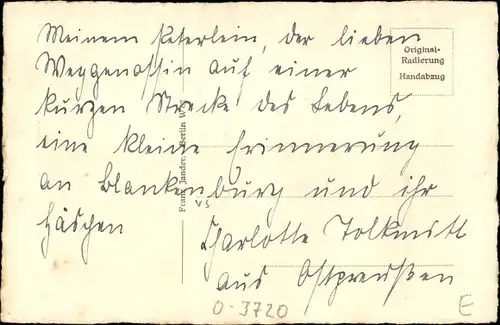 Meinem Keterlein, der lieben
Weggenossin auf einer
kurzen Strecke des Lebens,
eine kleine Erinnerung
an Blankenburg und ihr
Häschen
Charlotte Tolkmitt
aus Ostpreußen
Original-
Radierung
Handabzug
Franz Jander, Berlin W
VS
0-3720
E